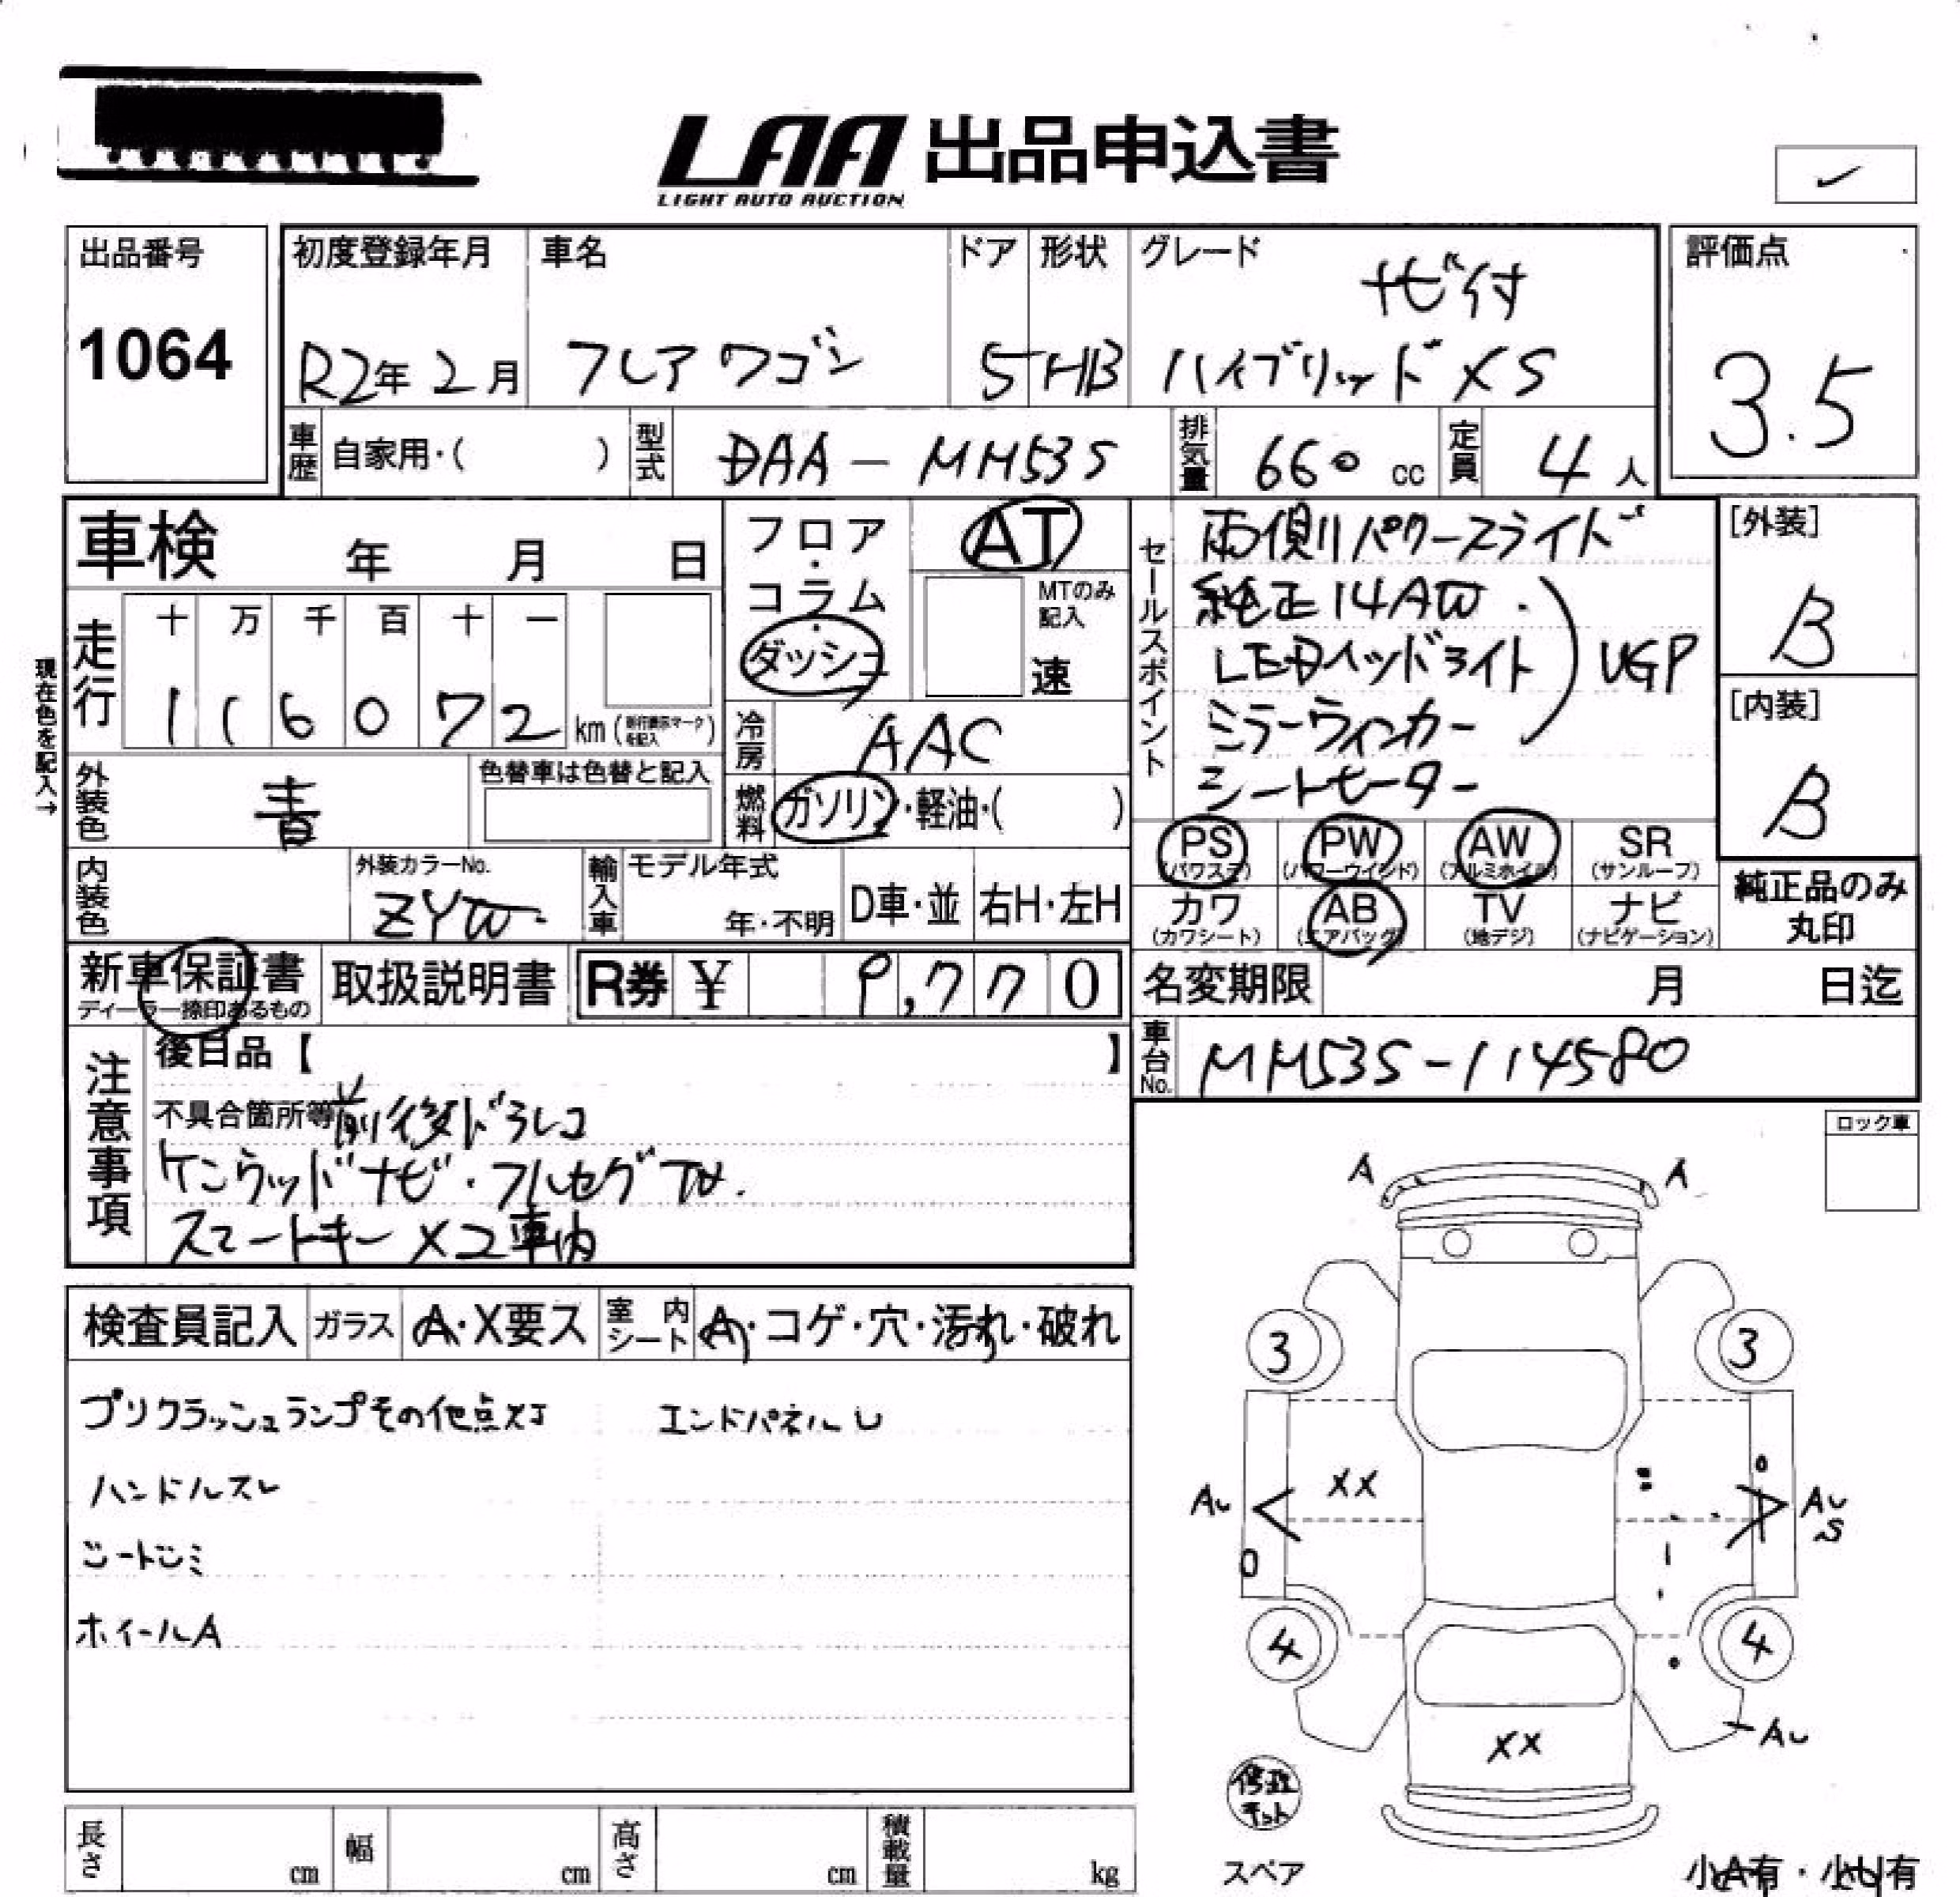 LAA 出品申込書
LIGHT AUTO AUCTION
出品番号
1064
初度登録年月
R2年 2月
車名
フレアワゴン
ドア
5
形状
HB
グレード
ナビ付
ハイブリッド XS
評価点
3.5
車歴 自家用・( )
型式 DAA-MM53S
排気量 660 cc
定員 4人
車検 年 月 日
フロア・コラム・ダッシュ
AT
MTのみ記入
速
セールスポイント
両側パワースライド
純正14AW.
LEDヘッドライト
ミラーウィンカー
シートヒーター
UGP
[外装]
B
[内装]
B
現在色を記入→
走行 十 万 千 百 十 一
1 1 6 0 7 2 km
冷房 AAC
外装色 青
色替車は色替と記入
燃料 ガソリン・軽油・( )
PS (パワステ)
PW (パワーウインド)
AW (アルミホイル)
SR (サンルーフ)
カワ (カワシート)
AB (エアバッグ)
TV (地デジ)
ナビ (ナビゲーション)
純正品のみ
丸印
内装色
外装カラーNo.
ZYW
輸入車 モデル年式
年・不明
D車・並 右H・左H
新車保証書
ディーラー捺印あるもの
取扱説明書
R券 ¥ 9,770
名変期限 月 日迄
車台No. MM53S-114580
注意事項
後日品【 】
不具合箇所等 前後ドラレコ
ケンウッドナビ・フルセグTV.
スマートキー×2車内
ロック車
A A
検査員記入 ガラス A・X要ス 室内シート A・コゲ・穴・汚れ・破れ
プリクラッシュランプその他点灯
エンドパネルU
ハンドルスレ
シートシミ
ホイールA
3 3
XX
AU AU
S
4 4
AU
XX
修理キット
スペア
長さ cm 幅 cm 高さ cm 積載量 kg
小A有・小U有